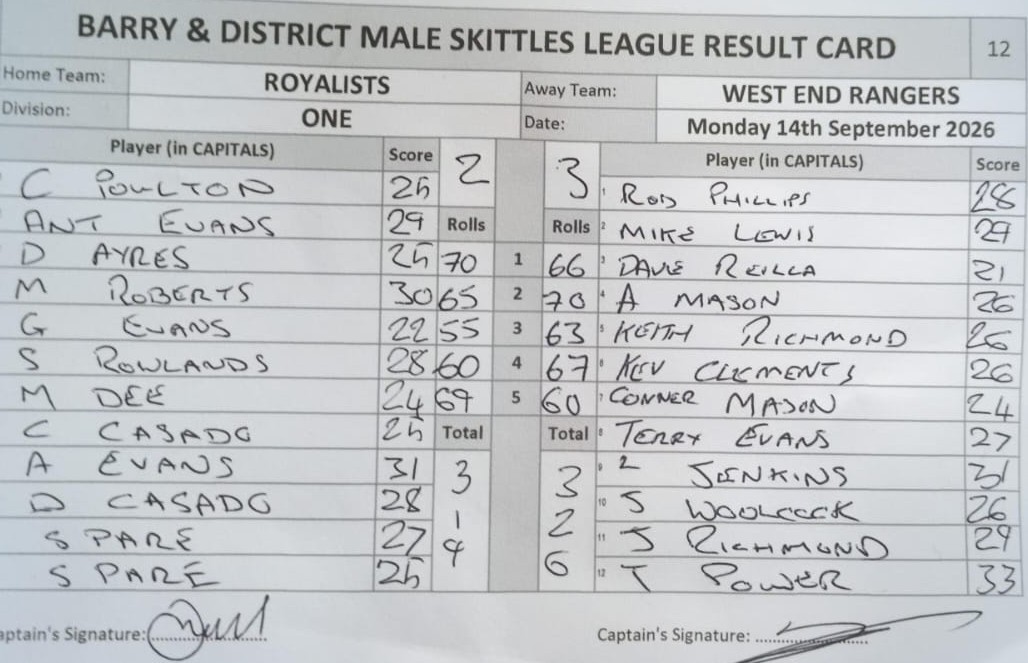 BARRY & DISTRICT MALE SKITTLES LEAGUE RESULT CARD 12
Home Team: ROYALISTS Away Team: WEST END RANGERS
Division: ONE Date: Monday 14th September 2026
Player (in CAPITALS) Score 2 3 Player (in CAPITALS) Score
C POULTON 25 1 ROD PHILLIPS 28
ANT EVANS 29 Rolls Rolls 2 MIKE LEWIS 29
D AYRES 25 70 1 66 3 DAVE REILLA 21
M ROBERTS 30 65 2 70 4 A MASON 26
G EVANS 22 55 3 63 5 KEITH RICHMOND 26
S ROWLANDS 28 60 4 67 6 KEV CLEMENTS 26
M DEE 24 69 5 60 7 CONNER MASON 24
C CASADO 25 Total Total 8 TERRY EVANS 27
A EVANS 31 3 3 9 2 JENKINS 31
D CASADO 28 1 2 10 S WOOLCOCK 26
SPARE 27 9 6 11 J RICHMOND 29
SPARE 25 12 T POWER 33
aptain's Signature: Captain's Signature: